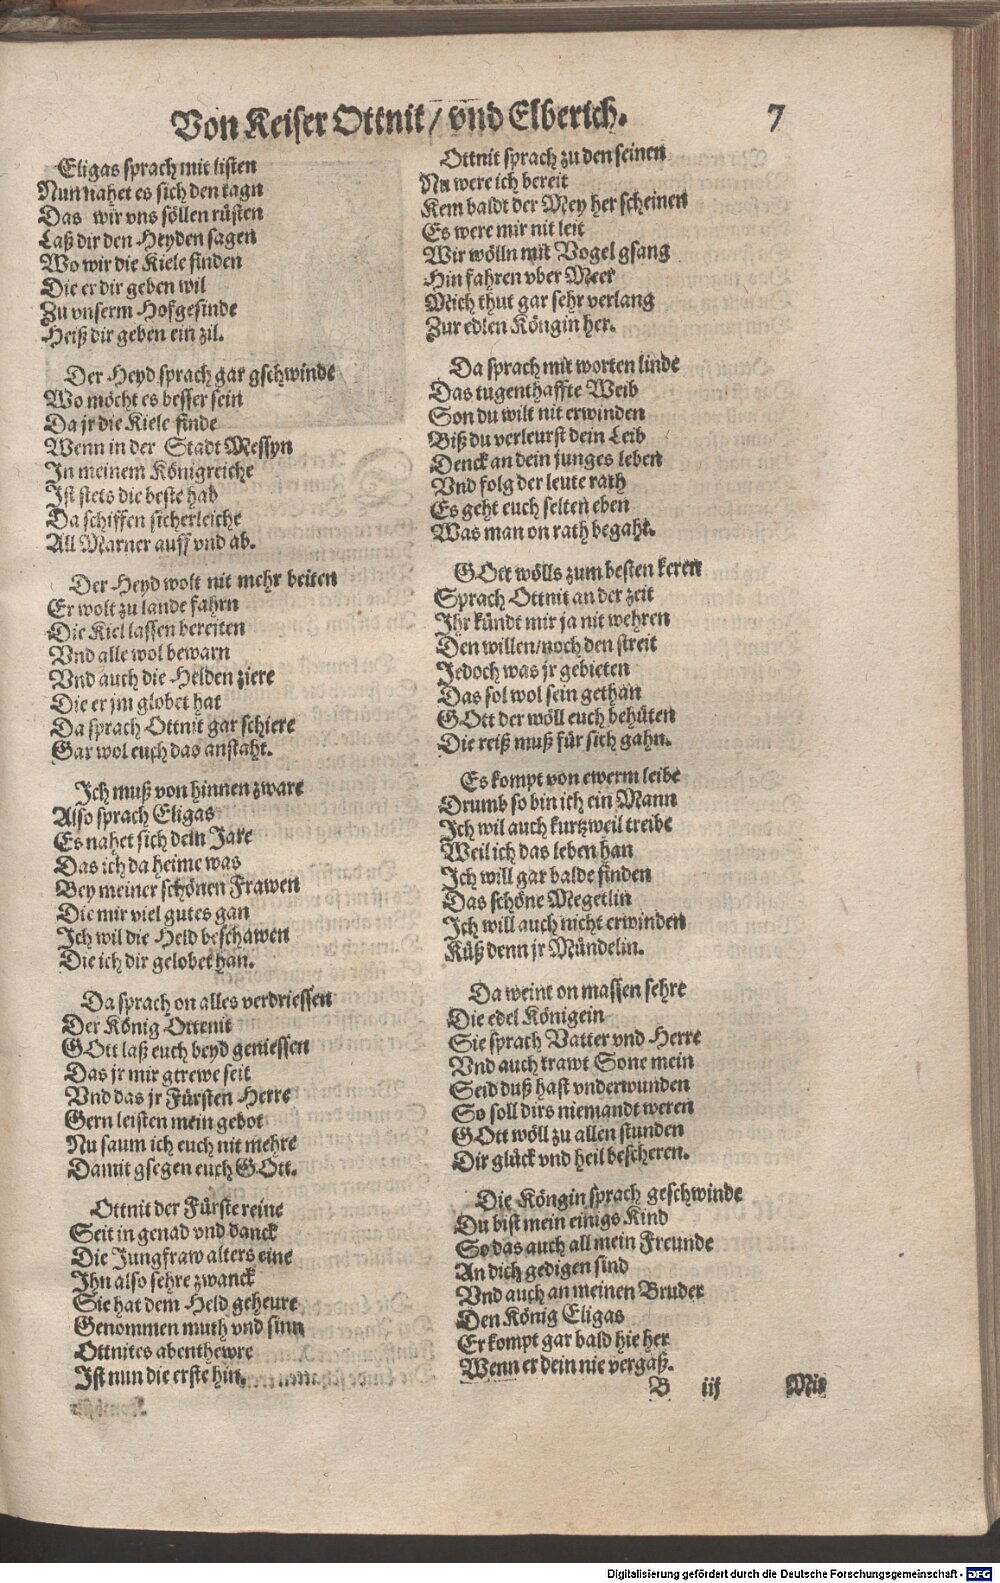 Von Keiser Ottnit / vnd Elberich. 7
Eligas sprach mit listen
Nun nahet es sich den tagn
Das wir vns söllen rüsten
Laß dir den Heyden sagen
Wo wir die Kiele finden
Die er dir geben wil
Zu vnserm Hofgesinde
Heiß dir geben ein zil.
Der Heyd sprach gar gschwinde
Wo möcht es besser sein
Da jr die Kiele finde
Wenn in der Stadt Messyn
In meinem Königreiche
Ist stets die beste hab
Da schiffen sicherleiche
All Marner auff vnd ab.
Der Heyd wolt nit mehr beiten
Er wolt zu lande fahrn
Die Kiel lassen bereiten
Vnd alle wol bewarn
Vnd auch die Helden ziere
Die er jm globet hat
Da sprach Ottnit gar schiere
Gar wol euch das anstaht.
Ich muß von hinnen zware
Also sprach Eligas
Es nahet sich dein Jare
Das ich da heime was
Bey meiner schönen Frawen
Die mir viel gutes gan
Ich wil die Held beschawen
Die ich dir gelobet han.
Da sprach on alles verdriessen
Der König Ottenit
GOtt laß euch beyd geniessen
Das jr mir gtrewe seit
Vnd das jr Fürsten Herre
Gern leisten mein gebot
Nu saum ich euch nit mehre
Damit gsegen euch GOtt.
Ottnit der Fürste reine
Seit in genad vnd danck
Die Jungfraw alters eine
Ihn also sehre zwanck
Sie hat dem Held geheure
Genommen muth vnd sinn
Ottnites abenthewre
Ist nun die erste hin.
Ottnit sprach zu den seinen
Nu were ich bereit
Kem baldt der Mey her scheinen
Es were mir nit leit
Wir wölln mit Vogel gsang
Hin fahren vber Meer
Mich thut gar sehr verlang
Zur edlen Köngin her.
Da sprach mit worten linde
Das tugenthaffte Weib
Son du wilt nit erwinden
Biß du verleurst dein Leib
Denck an dein junges leben
Vnd folg der leute rath
Es geht euch selten eben
Was man on rath begaht.
GOtt wölls zum besten keren
Sprach Ottnit an der zeit
Ihr kündt mir ja nit wehren
Den willen/noch den streit
Jedoch was jr gebieten
Das sol wol sein gethan
GOtt der wöll euch behüten
Die reiß muß für sich gahn.
Es kompt von ewerm leibe
Drumb so bin ich ein Mann
Ich wil auch kurtzweil treibe
Weil ich das leben han
Ich will gar balde finden
Das schöne Megetlin
Ich will auch nicht erwinden
Küß denn jr Mündelin.
Da weint on massen sehre
Die edel Königein
Sie sprach Vatter vnd Herre
Vnd auch trawt Sone mein
Seid duß hast vnderwunden
So soll dirs niemandt weren
GOtt wöll zu allen stunden
Dir glück vnd heil bescheren.
Die Köngin sprach geschwinde
Du bist mein einigs Kind
So das auch all mein Freunde
An dich gedigen sind
Vnd auch an meinen Bruder
Den König Eligas
Er kompt gar bald hie her
Wenn er dein nie vergaß.
B iij Mit
Digitalisierung gefördert durch die Deutsche Forschungsgemeinschaft - DFG